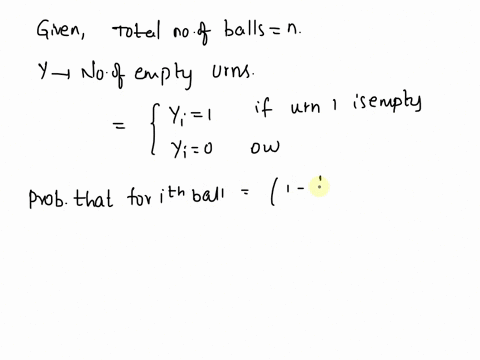 Given, Total no. of balls = n.
Y → No. of empty urns.
= { Yi = 1 if urn 1 is empty
Yi = 0 ow
Prob. that for ith ball = ( 1 -